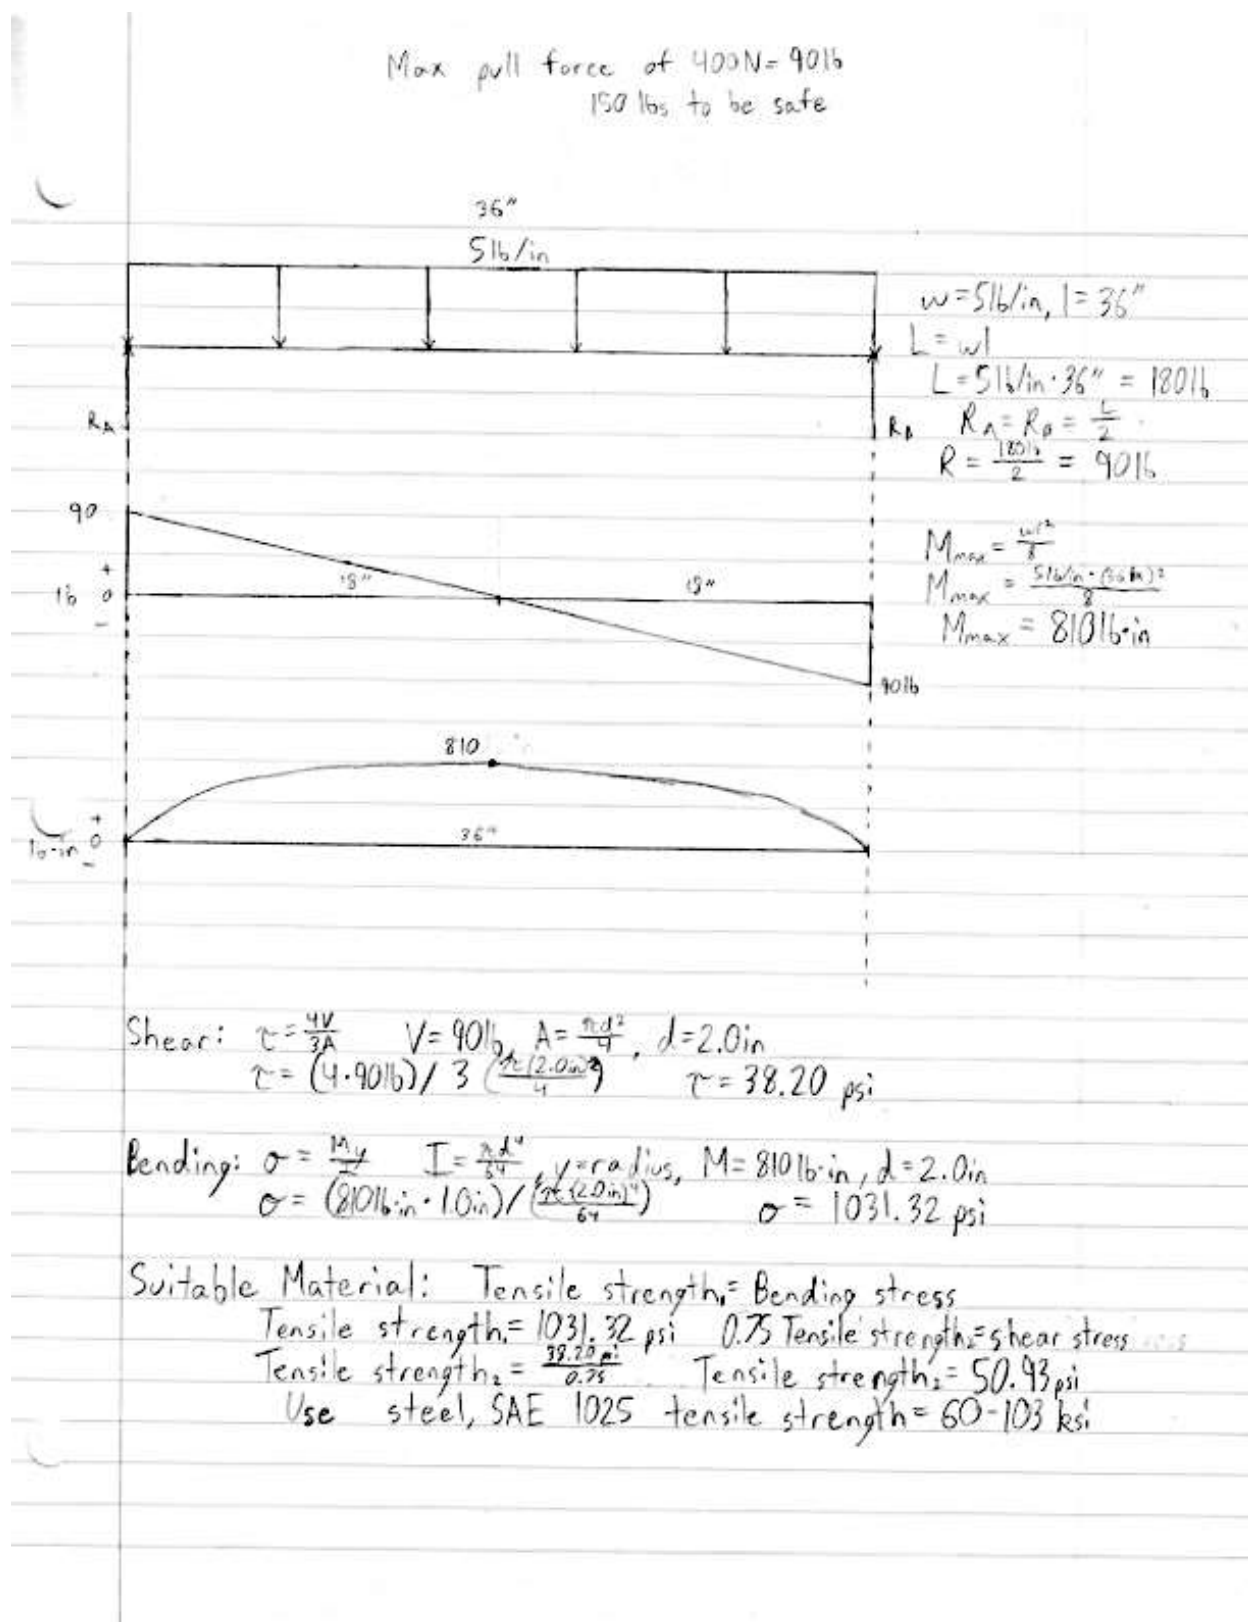 Max pull force of 400N = 90lb
150 lbs to be safe
36"
5lb/in
w = 5lb/in, l = 36"
L = wl
L = 5lb/in · 36" = 180lb
R_A R_B R_A = R_B = L/2
R = 180lb/2 = 90lb
90
+
lb 0 18" 18"
-
90lb
M_max = wl²/8
M_max = 5lb/in · (36in)²/8
M_max = 810lb·in
810
+
lb-in 0 36"
-
Shear: τ = 4V/3A V = 90lb, A = πd²/4, d = 2.0in
τ = (4·90lb)/3(π(2.0in)²/4) τ = 38.20 psi
Bending: σ = My/I I = πd⁴/64, y = radius, M = 810lb·in, d = 2.0in
σ = (810lb·in · 1.0in)/(π(2.0in)⁴/64) σ = 1031.32 psi
Suitable Material: Tensile strength₁ = Bending stress
Tensile strength₁ = 1031.32 psi 0.75 Tensile strength₂ = shear stress
Tensile strength₂ = 38.20 psi/0.75 Tensile strength₂ = 50.93psi
Use steel, SAE 1025 tensile strength = 60-103 ksi